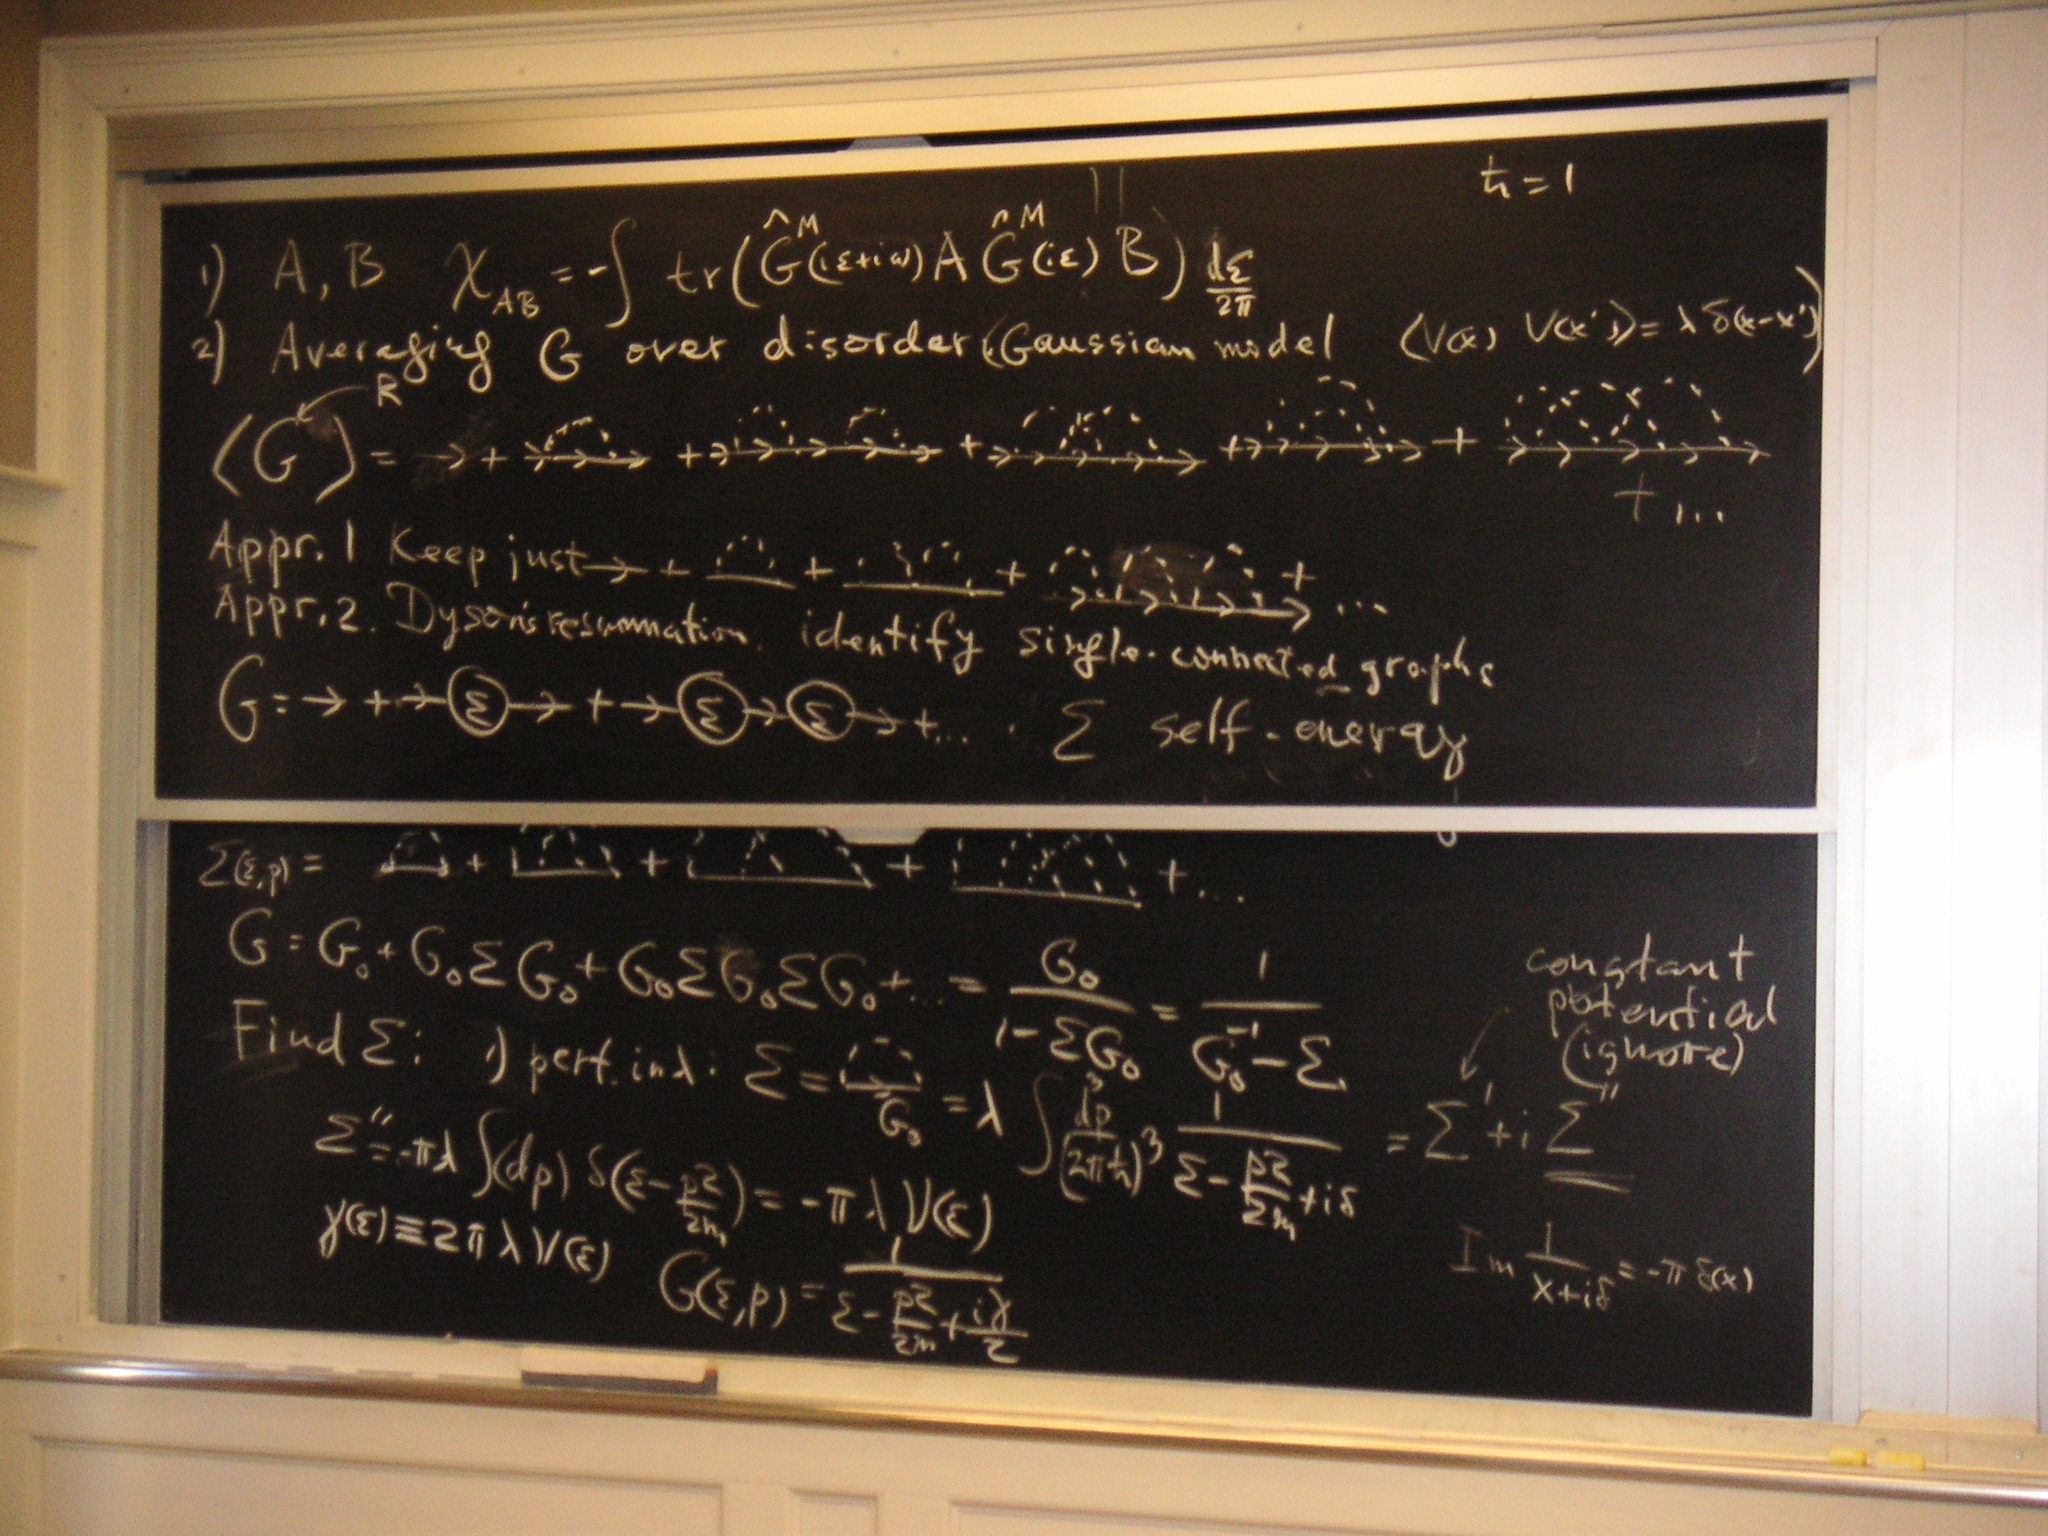 ħ = 1
1) A, B χ_AB = -∫ tr(Ĝ^M(iε+iω) A Ĝ^M(iε) B) dε/2π
2) Averaging G over disorder (Gaussian model ⟨V(x) V(x')⟩ = λ δ(x-x'))
R
⟨G⟩ = → + + + + + + ...
Appr. 1 Keep just → + + + + ...
Appr. 2. Dyson's resummation. identify single-connected graphs
G = → + → Σ → + → Σ → Σ → + ... . Σ self-energy
Σ(ε,p) = + + + + ...
G = G₀ + G₀ΣG₀ + G₀ΣG₀ΣG₀ + ... = G₀/(1-ΣG₀) = 1/(G₀⁻¹-Σ)
constant
potential
(ignore)
Find Σ: 1) pert. in λ: Σ = G₀ = λ ∫ d³p/(2πħ)³ 1/(ε - p²/2m + iδ) = Σ' + i Σ''
Σ'' = -πλ ∫(dp) δ(ε - p²/2m) = -πλ ν(ε)
γ(ε) ≡ 2πλν(ε)
G(ε,p) = 1/(ε - p²/2m + iγ/2)
Im 1/(x+iδ) = -π δ(x)